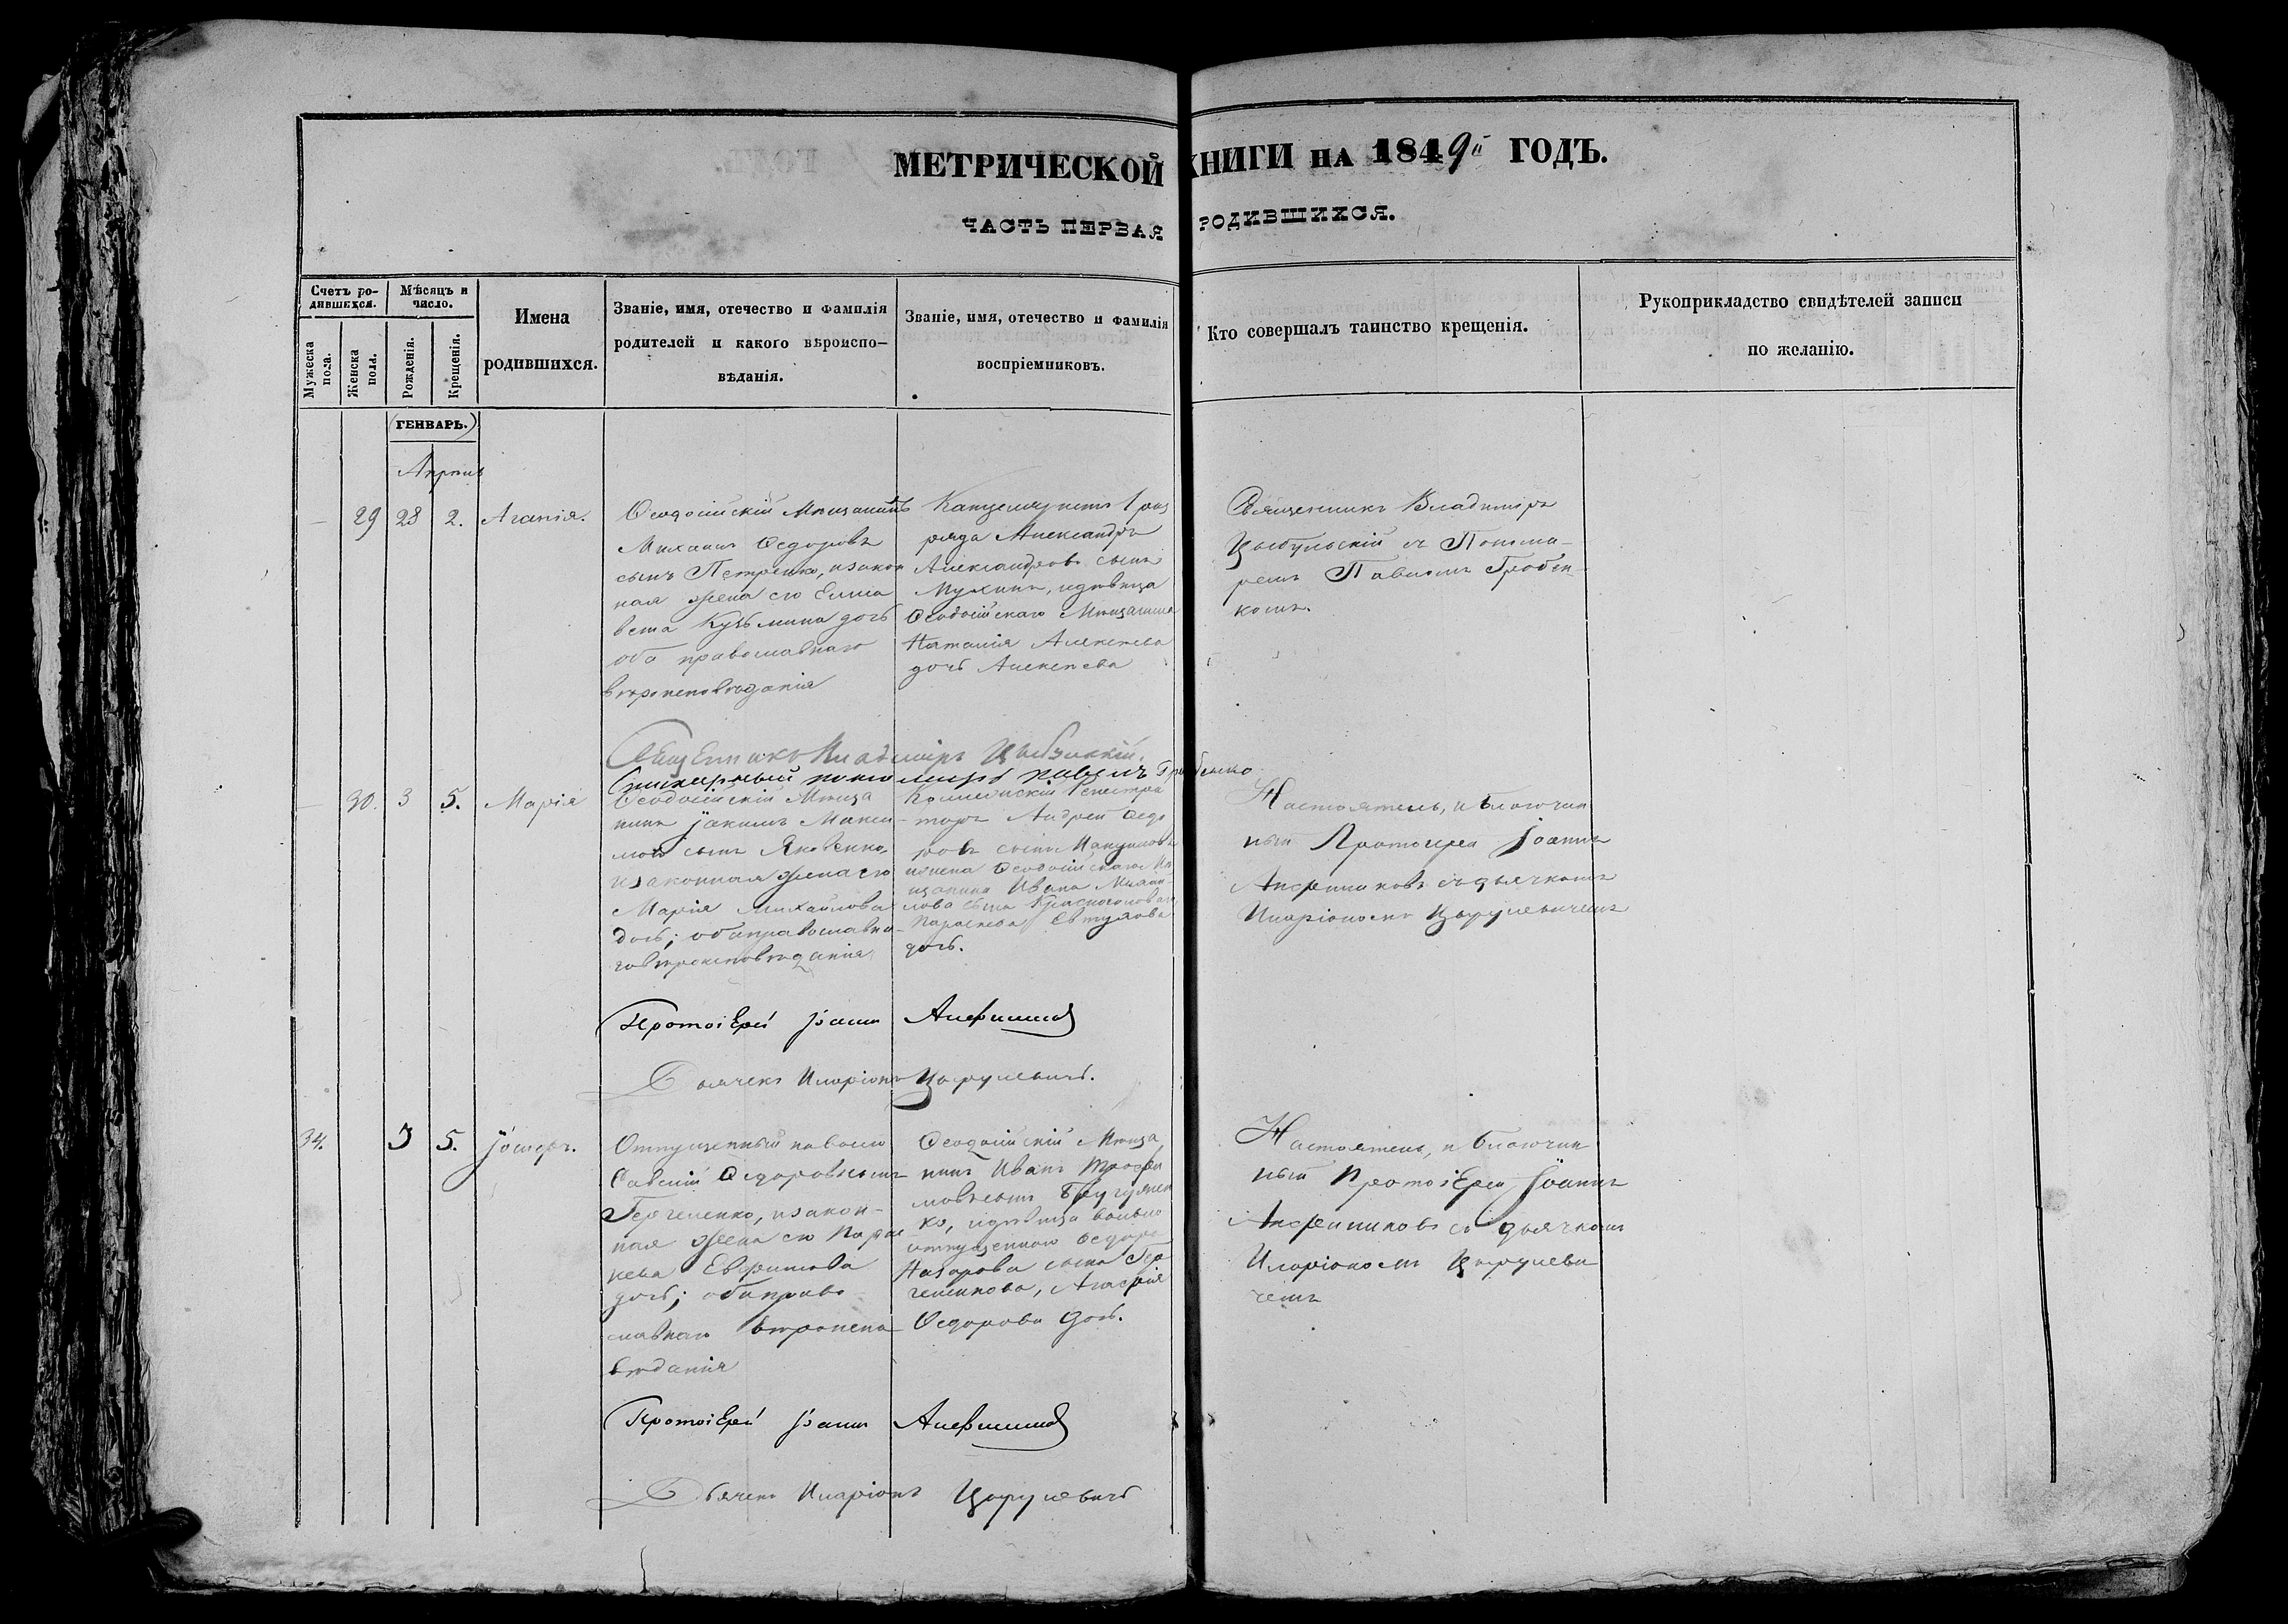 МЕТРИЧЕСКОЙ КНИГИ НА 1849й ГОДЪ.
ЧАСТЬ ПЕРВАЯ РОДИВШИХСЯ.
Счетъ ро-
дившихся.
Мужеска
пола.
Женска
пола.
Мѣсяцъ и
число.
Рожденія.
Крещенія.
Имена
родившихся.
Званіе, имя, отечество и фамилія
родителей и какого вѣроиспо-
вѣданія.
Званіе, имя, отечество и фамилія
воспріемниковъ.
Кто совершалъ таинство крещенія.
Рукоприкладство свидѣтелей записи
по желанію.
ГЕНВАРЬ.
Апрѣль
29 28 2. Агапія.
Ѳеодосійскій Мѣщанинъ
Михаилъ Ѳедоровъ
сынъ Петренко, изакон
ная жена его Елиса
вета Кузьмина дочь
оба православнаго
вѣроисповѣданія
Канцеляристъ 1 раз
ряда Александръ
Александровъ сынъ
Мухинъ, идѣвица
Ѳеодосійскаго Мѣщанина
Наталія Алексѣева
дочь Алексѣева
Священникъ Владиміръ
Цыбульскій съ Понома-
ремъ Павломъ Гребен-
комъ.
Священникъ Владиміръ Цыбульскій.
Стихарный пономарь Павелъ Гребенко
30. 3 5. Марія
Ѳеодосійскій Мѣща
нинъ Іакимъ Макси-
мовъ сынъ Яковенко,
изаконная жена его
Марія Михайлова
дочь; оба православна-
го вѣроисповѣданія
Коллежскій Регистра
торъ Андрей Ѳедо
ровъ сынъ
ижена Ѳеодосійскаго Мѣ
щанина Ивана Михай-
лова сына
Параскева Евтухова
дочь.
Настоятель, и благочин
ный Протоіерей Іоаннъ
Анфиниковъ съ дьячкомъ
Иларіономъ Цырулевичемъ
Протоіерей Іоаннъ
Дьячекъ Иларіонъ Цырулевичъ.
34. 3 5. Іосифъ.
Отпущенный на волю
Савелій Ѳедоровъ сынъ
Гергеленко, изакон-
ная жена его Парас
кева Евфимова
дочь; оба право
славнаго вѣроиспо
вѣданія
Ѳеодосійскій Мѣща
нинъ Иванъ Трофи
мовъ сынъ
ко, идѣвица вольно
отпущеннаго Ѳедора
Назарова сына Гер
геленкова, Агафія
Ѳедорова дочь.
Настоятель, и благочин
ный Протоіерей Іоаннъ
Анфиниковъ съ дьячкомъ
Иларіономъ Цырулеви
чемъ
Протоіерей Іоаннъ
Дьячекъ Иларіонъ Цырулевичъ